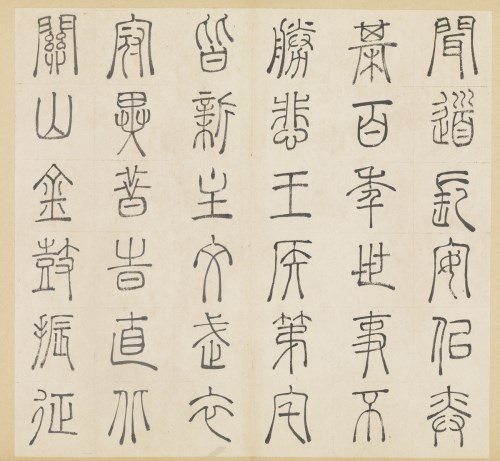 聞道長安佀弈
棊百年世事不
勝悲王侯第宅
皆新主文武衣
冠異昔旹直北
關山金鼓振征